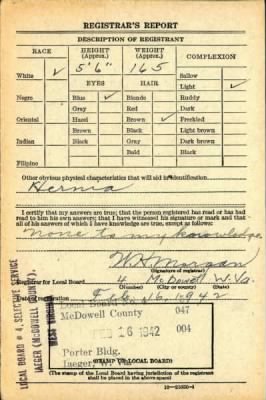 REGISTRAR'S REPORT
DESCRIPTION OF REGISTRANT
RACE HEIGHT (Approx.) WEIGHT (Approx.) COMPLEXION
5' 6" 165
White ✓ Sallow
EYES HAIR Light ✓
Negro Blue ✓ Blonde Ruddy
Gray Red Dark
Oriental Hazel Brown ✓ Freckled
Brown Black Light brown
Indian Black Gray Dark brown
Bald Black
Filipino
Other obvious physical characteristics that will aid in identification
Hernia
I certify that my answers are true; that the person registered has read or has had
read to him his own answers; that I have witnessed his signature or mark and that
all of his answers of which I have knowledge are true, except as follows:
None to my knowledge.
W H Morgan
(Signature of registrar)
Registrar for Local Board 4 McDowell W. Va
(Number) (City or county) (State)
Date of registration Feb. 16, 1942
McDowell County 047
FEB 16 1942 004
Porter Bldg.
Iaeger, W. Va.
(STAMP OF LOCAL BOARD)
(The stamp of the Local Board having jurisdiction of the registrant
shall be placed in the above space)
LOCAL BOARD # 4, SELECTIVE SERVICE
IAEGER (MCDOWELL
WEST VIRGINIA